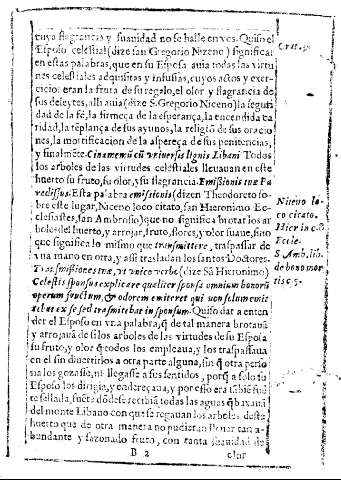 cuya flagrancia y suauidad no se halle en vos. Quiso el
Esposo celestial (dize san Gregorio Niceno) significar
en estas palabras, que en su Esposa auia todas las virtu
nes celestiales adquisitas y infusas, cuyos actos y exer-
cicios eran la fruta de su regalo, el olor y flagrancia de
sus deleytes, alli auia (dize S. Gregorio Niceno) la seguri
dad de la fè, la firmeça de la esperança, la encendida ca
ridad, la tẽplança de sus ayunos, la religiõ de sus oracio
nes, la mortificacion de la aspereça de sus penitencias,
y finalmẽte. Cinamomũ cũ vniuersis lignis Libani Todos
los arboles de las virtudes celestiales lleuauan en este
huerto su fruto, su olor, y su flagrancia. Emissionis tuæ Pa
radissus: Esta palabra emissionis (dizen Theodoreto so-
bre este lugar, Niceno loco citato, san Hieronimo Ec-
clesiastes, san Ambrosio) que no significa brotar los ar
boles del huerto, y arrojar, fruto, flores, y olor suaue, sino
que significa lo mismo que transmittere, traspassar de
vna mano en otra, y assi trasladan los santos Doctores.
Transmissiones tuæ, et vnico verbo (dize Sã Hieronimo)
Celestis sponsus explicare quæliter sponsa omnium bonorũ
operum fructum, & odorem emiteret qui non solum emit
tebat ex se sed trasmitebat in sponsum. Quiso dar a enten
der el Esposo en vna palabra, q̃ de tal manera brotauã
y arrojauã de si los arboles de las virtudes de su Esposa
su fruto, y olor q̃ todos los empleaua, y los traspassaua
en el sin diuertirlos a otra parte alguna, sin q̃ otra perso
na los gozasse, ni llegasse a sus sentidos, porq̃ a solo su
Esposo los dirigia, y endereçaua, y por esso era tãbiẽ fuẽ
te sellada, fuẽte dõde se recibiã todas las aguas q̃ baxauã
del monte Libano con que se regauan los arboles deste
huerto que de otra manera no pudieran lleuar tan a-
bundante y sazonado fruto, con tanta suauidad de
B 2
olor
Niceno lo-
co citato.
Hier in c. 8
Eccle-
S Amb, lib.
de bono mor
tis c 5.